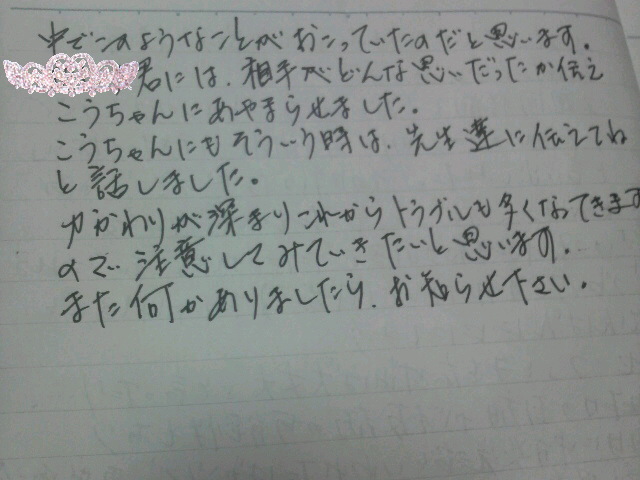 中でこのようなことがおこっていたのだと思います。
君には、相手がどんな思いだったか伝え
こうちゃんにあやまらせました。
こうちゃんにもそういう時は、先生達に伝えてね
と話しました。
かかわりが深まりこれからトラブルも多くなってきます
ので注意してみていきたいと思います。
また何かありましたら、お知らせ下さい。